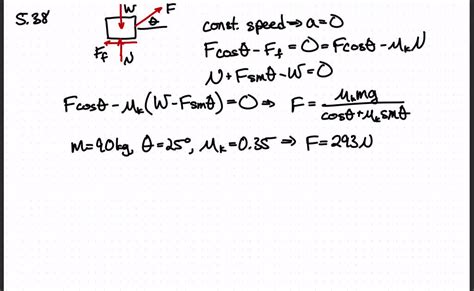 5.38
W
F
θ
F_f
N
const. speed ⇒ a=0
Fcosθ - F_f = 0 = Fcosθ - μ_kN
N + Fsinθ - W = 0
Fcosθ - μ_k(W - Fsinθ) = 0 ⇒ F = μ_kmg / (cosθ + μ_ksinθ)
m = 90kg, θ = 25°, μ_k = 0.35 ⇒ F = 293N